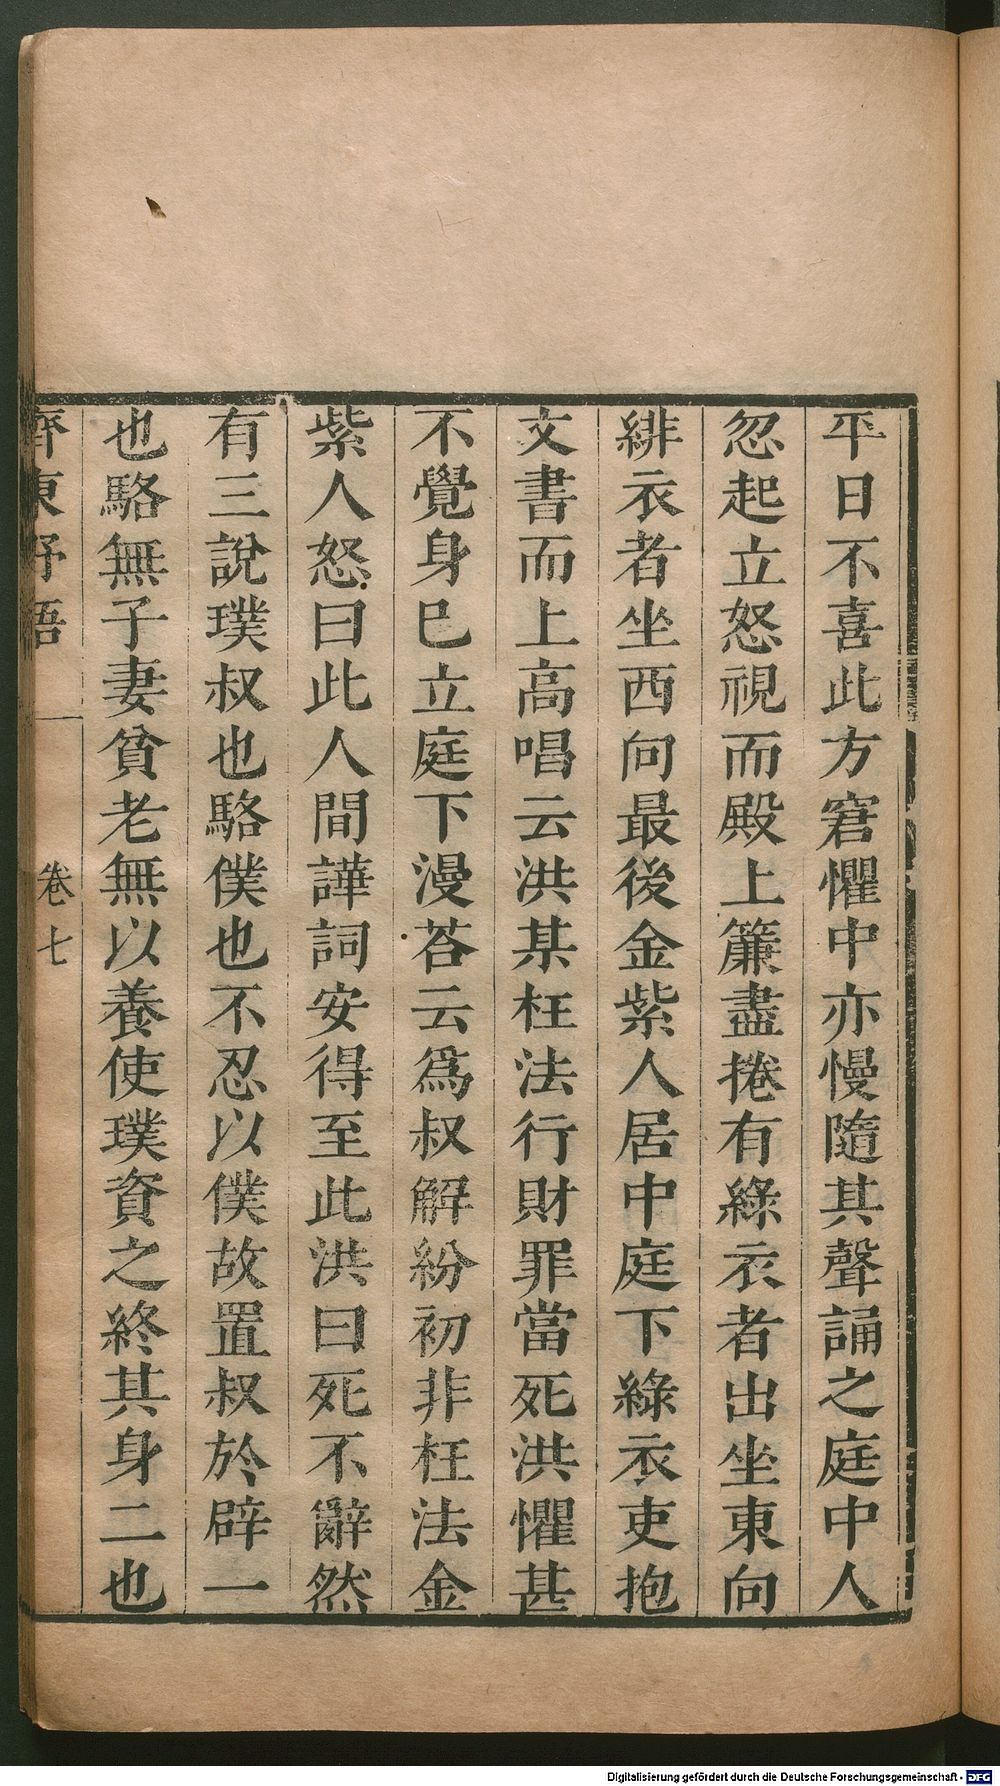 平日不喜此方窘懼中亦慢隨其聲誦之庭中人
忽起立怒視而殿上簾盡捲有綠衣者出坐東向
緋衣者坐西向最後金紫人居中庭下綠衣吏抱
文書而上高唱云洪某枉法行財罪當死洪懼甚
不覺身已立庭下漫荅云爲叔解紛初非枉法金
紫人怒曰此人間譁詞安得至此洪曰死不辭然
有三說璞叔也駱僕也不忍以僕故置叔於辟一
也駱無子妻貧老無以養使璞資之終其身二也
齊東野語
卷七
Digitalisierung gefördert durch die Deutsche Forschungsgemeinschaft - DFG